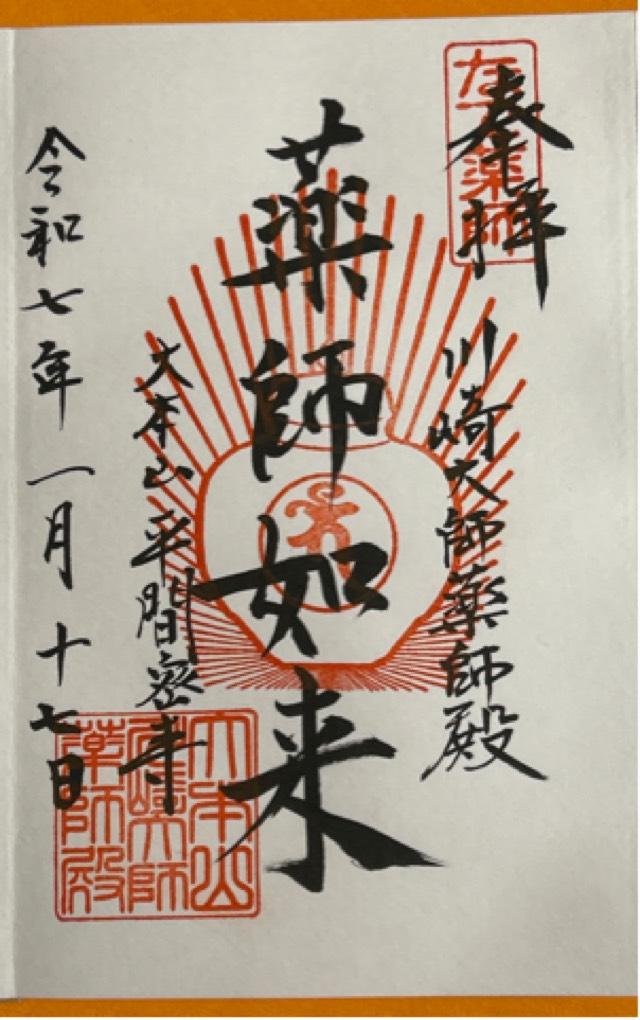 奉拝
なで薬師
川崎大師薬師殿
薬師如来
大本山平間密寺
令和七年一月十七日
大本山
川崎大師
薬師殿